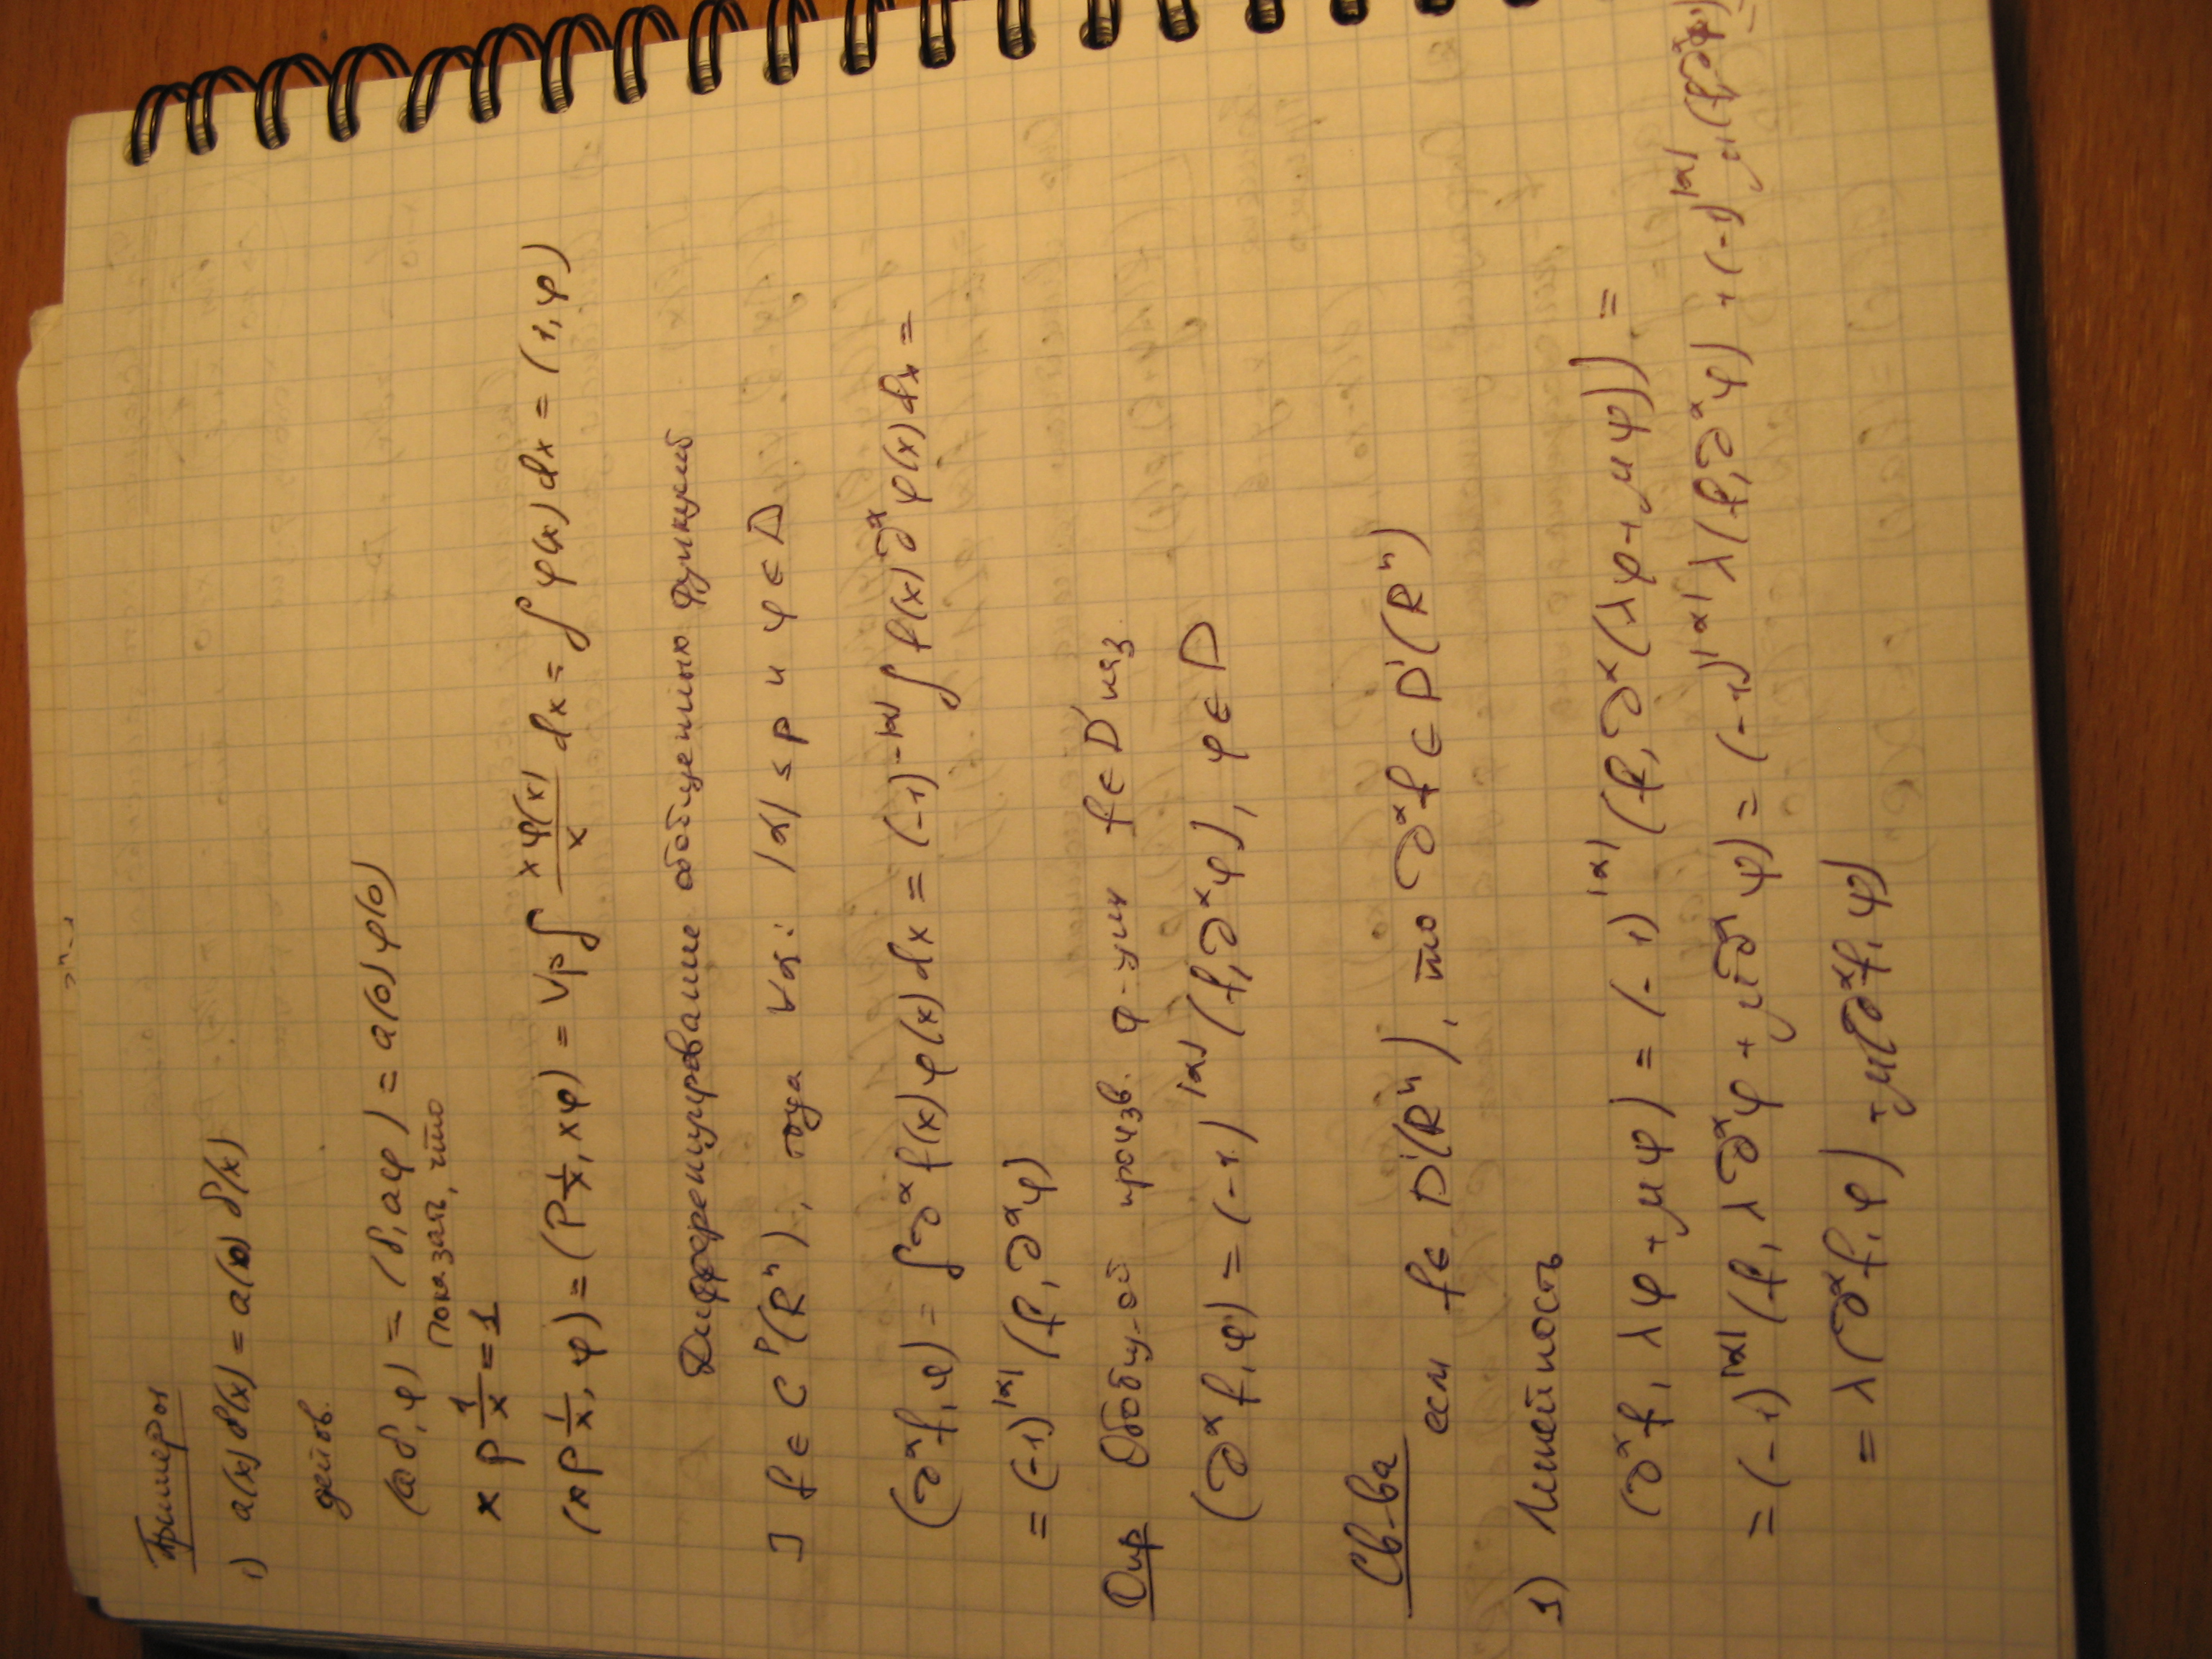 Примеры
1) a(x)δ(x) = a(0) δ(x)
действ.
(aδ, φ) = (δ, aφ) = a(0) φ(0)
показать, что
x P 1/x = 1
(xP 1/x, φ) = (P 1/x, xφ) = Vp ∫ xφ(x)/x dx = ∫ φ(x) dx = (1, φ)
Дифференцирование обобщенных функций
] f ∈ C^p(R^n), тогда ∀α: |α| ≤ p и φ ∈ D
(∂^α f, φ) = ∫ ∂^α f(x) φ(x) dx = (-1)^-|α| ∫ f(x) ∂^α φ(x) dx =
= (-1)^|α| (f, ∂^α φ)
Опр Обобщ-ой произв. ф-ции f ∈ D' наз.
(∂^α f, φ) = (-1)^|α| (f, ∂^α φ), φ ∈ D
Св-ва
если f ∈ D'(R^n), то ∂^α f ∈ D'(R^n)
1) Линейность
(∂^α f, λφ + μψ) = (-1)^|α| (f, ∂^α (λφ + μψ)) =
= (-1)^|α| (f, λ∂^α φ + μ∂^α ψ) = (-1)^|α| λ(f, ∂^α φ) + (-1)^|α| μ(f, ∂^α ψ) =
= λ(∂^α f, φ) + μ(∂^α f, ψ)